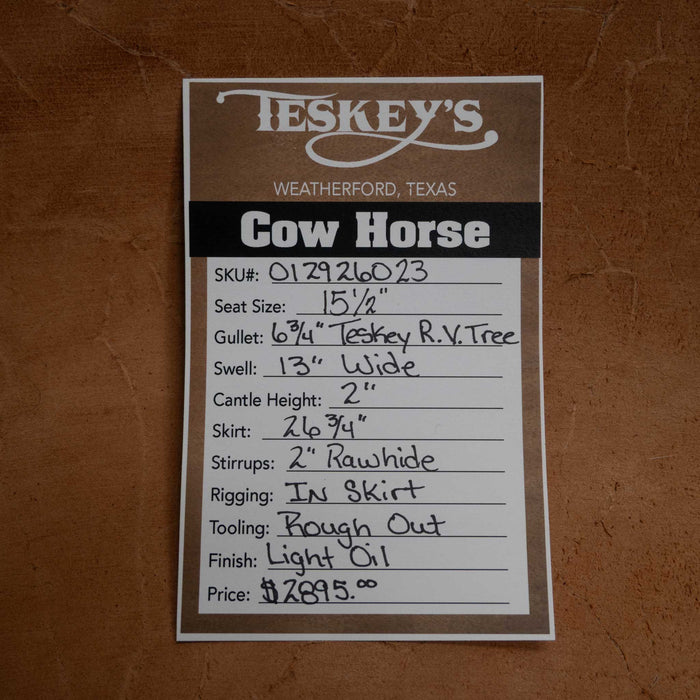 TESKEY'S
WEATHERFORD, TEXAS
Cow Horse
SKU#: 012926023
Seat Size: 15 1/2"
Gullet: 6 3/4" Teskey R.V. Tree
Swell: 13" Wide
Cantle Height: 2"
Skirt: 26 3/4"
Stirrups: 2" Rawhide
Rigging: In Skirt
Tooling: Rough Out
Finish: Light Oil
Price: $2895.00